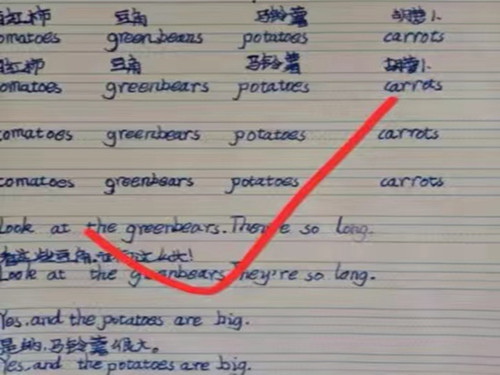 豆角 马铃薯
omatoes greenbeans potatoes carrots
豆角 马铃薯
omatoes greenbears potatoes carrots
tomatoes greenbears potatoes carrots
tomatoes greenbears potatoes carrots
Look at the greenbears. They're so long.
Look at the greenbears They're so long.
Yes, and the potatoes are big.
是的,马铃薯很大。
Yes, and the potatoes are big.